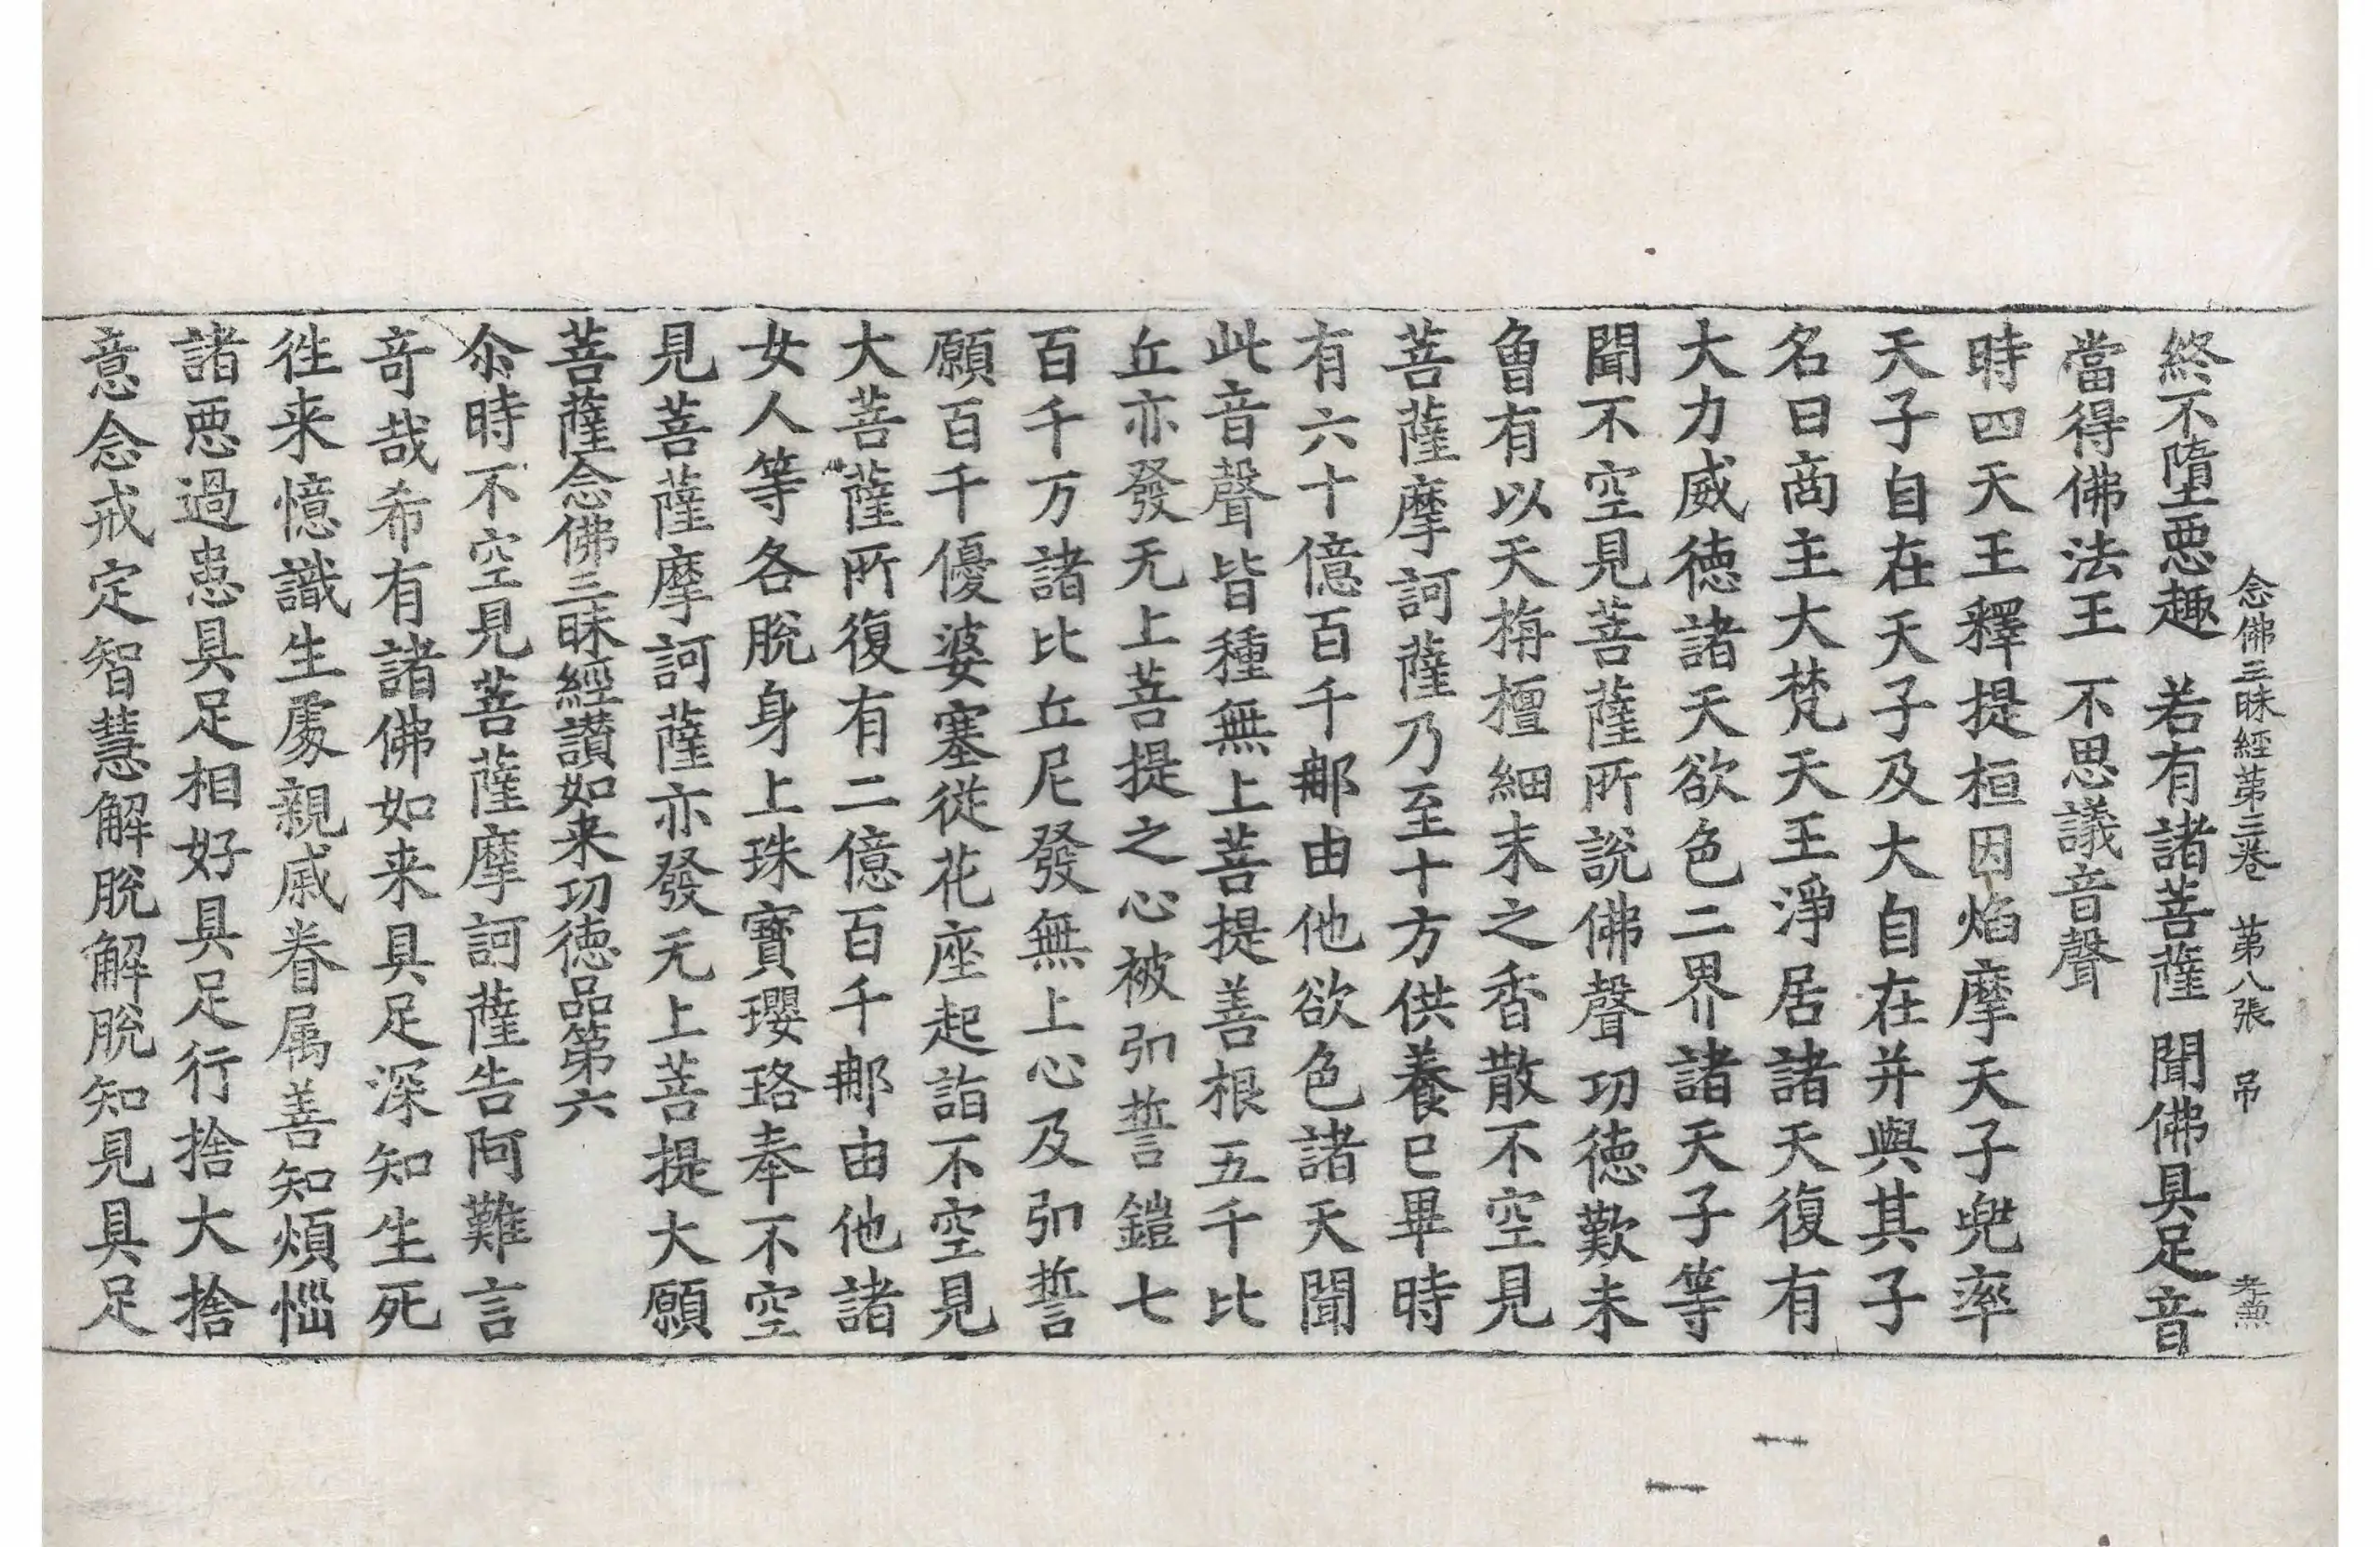 念佛三昧經第三卷 第八張 吊 孝𩵋
終不墮惡趣 若有諸菩薩 聞佛具足音
當得佛法王 不思議音聲
時四天王釋提桓因焰摩天子兜率
天子自在天子及大自在并與其子
名曰商主大梵天王淨居諸天復有
大力威德諸天欲色二界諸天子等
聞不空見菩薩所說佛聲功德歎未
曾有以天栴檀細末之香散不空見
菩薩摩訶薩乃至十方供養已畢時
有六十億百千那由他欲色諸天聞
此音聲皆種無上菩提善根五千比
丘亦發无上菩提之心被弘誓鎧七
百千万諸比丘尼發無上心及弘誓
願百千優婆塞從花座起詣不空見
大菩薩所復有二億百千那由他諸
女人等各脫身上珠寶瓔珞奉不空
見菩薩摩訶薩亦發无上菩提大願
菩薩念佛三昧經讃如来功德品第六
尒時不空見菩薩摩訶薩告阿難言
奇哉希有諸佛如来具足深知生死
往来憶識生處親戚眷属善知煩惱
諸惡過患具足相好具足行捨大捨
意念戒定智慧解脫解脫知見具足